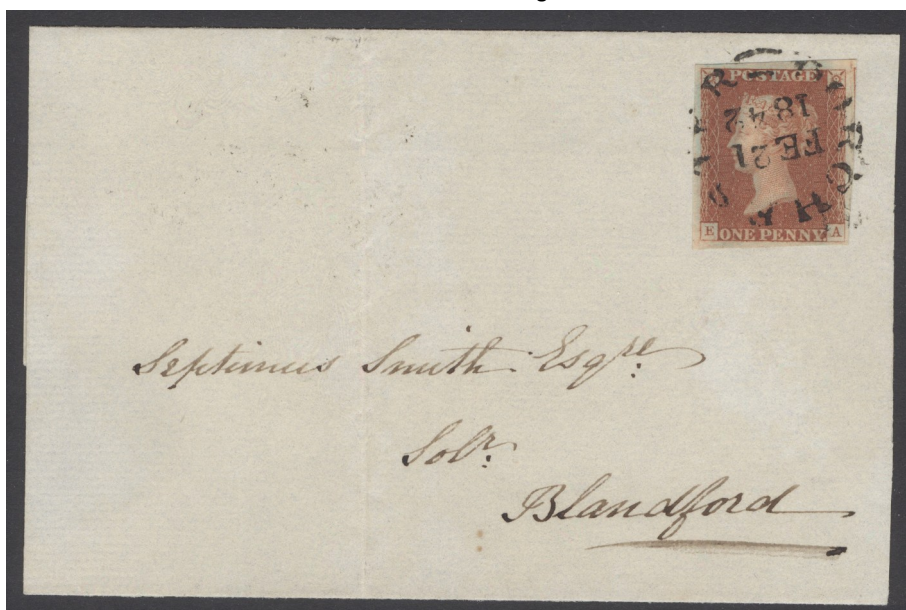 POSTAGE
FE 21
1842
E ONE PENNY. A
Septimus Smith Esqre
Solr:
Blandford